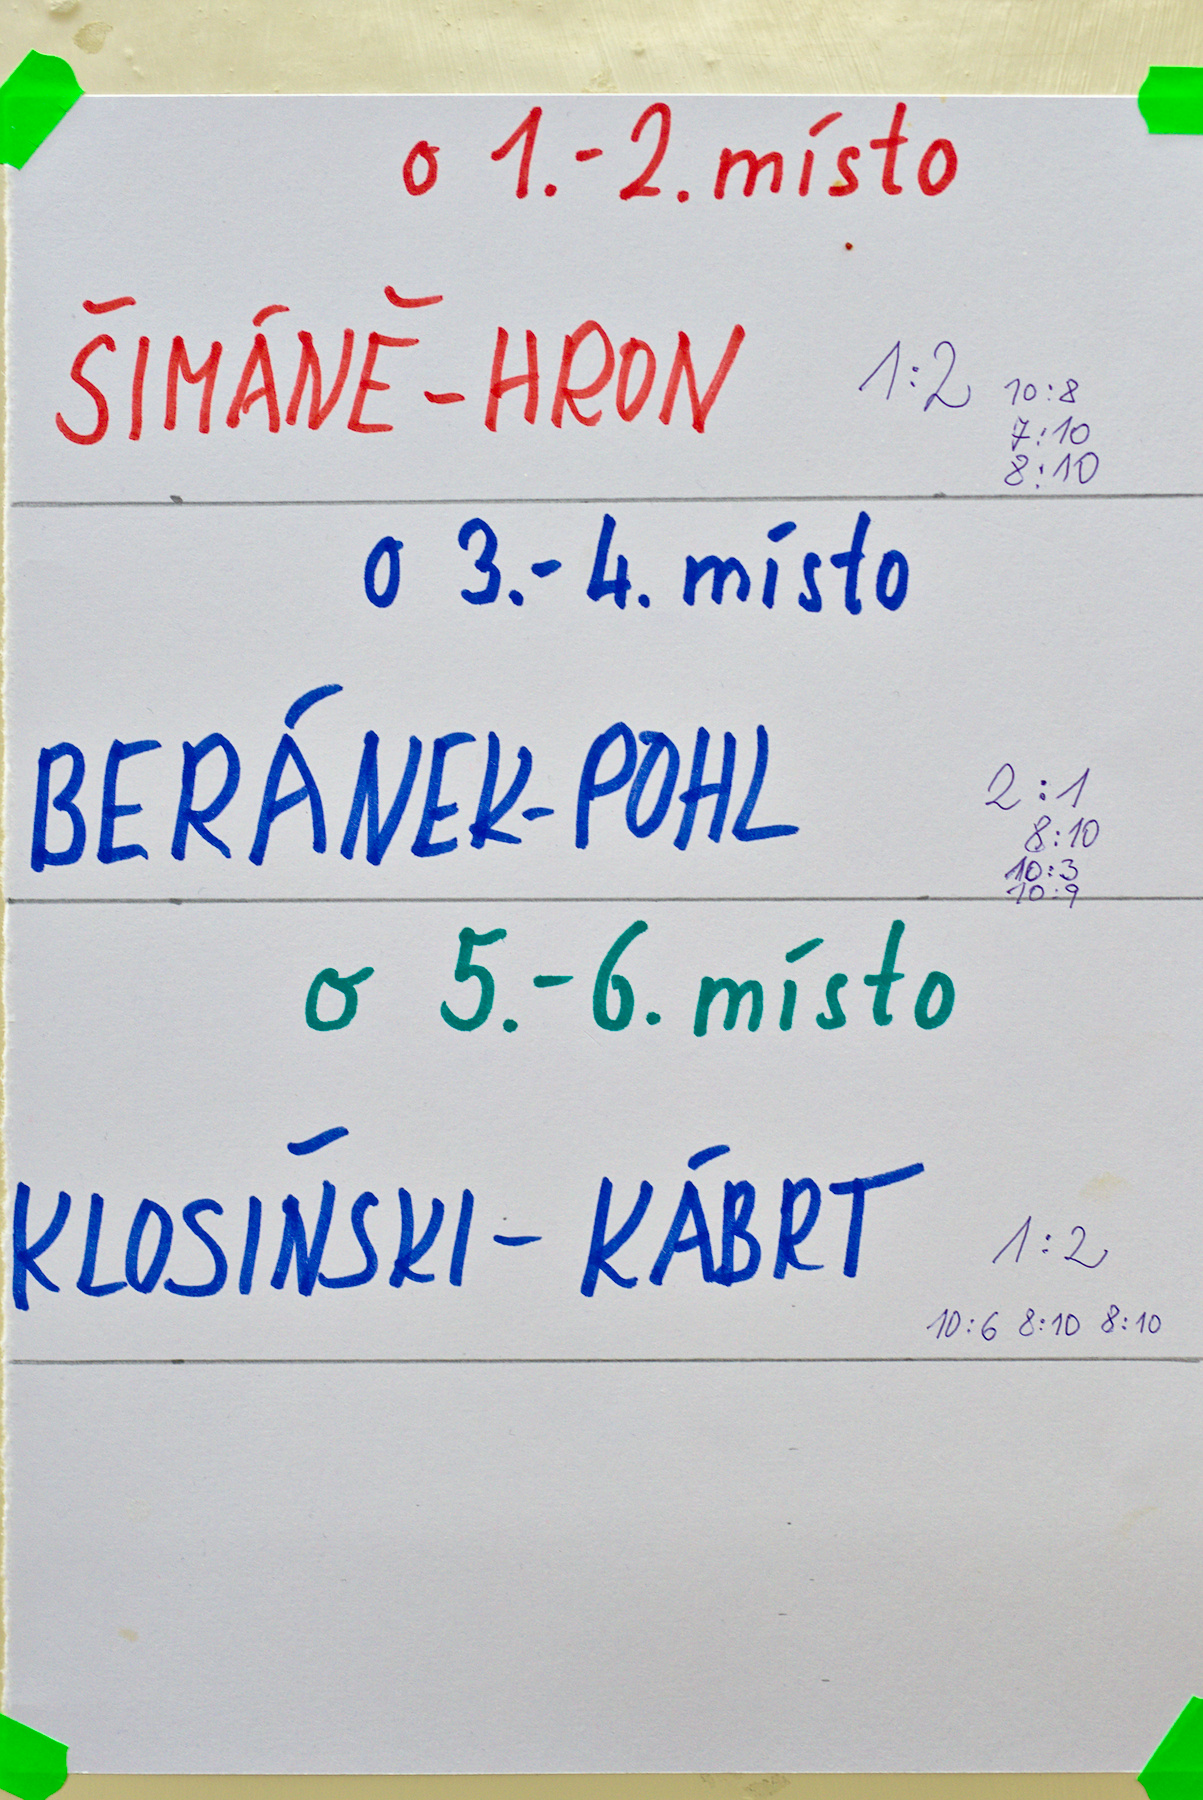 o 1.-2. místo
ŠIMÁNĚ-HRON 1:2 10:8
7:10
8:10
o 3.-4. místo
BERÁNEK-POHL 2:1
8:10
10:3
10:9
o 5.-6. místo
KLOSIŃSKI - KÁBRT 1:2
10:6 8:10 8:10